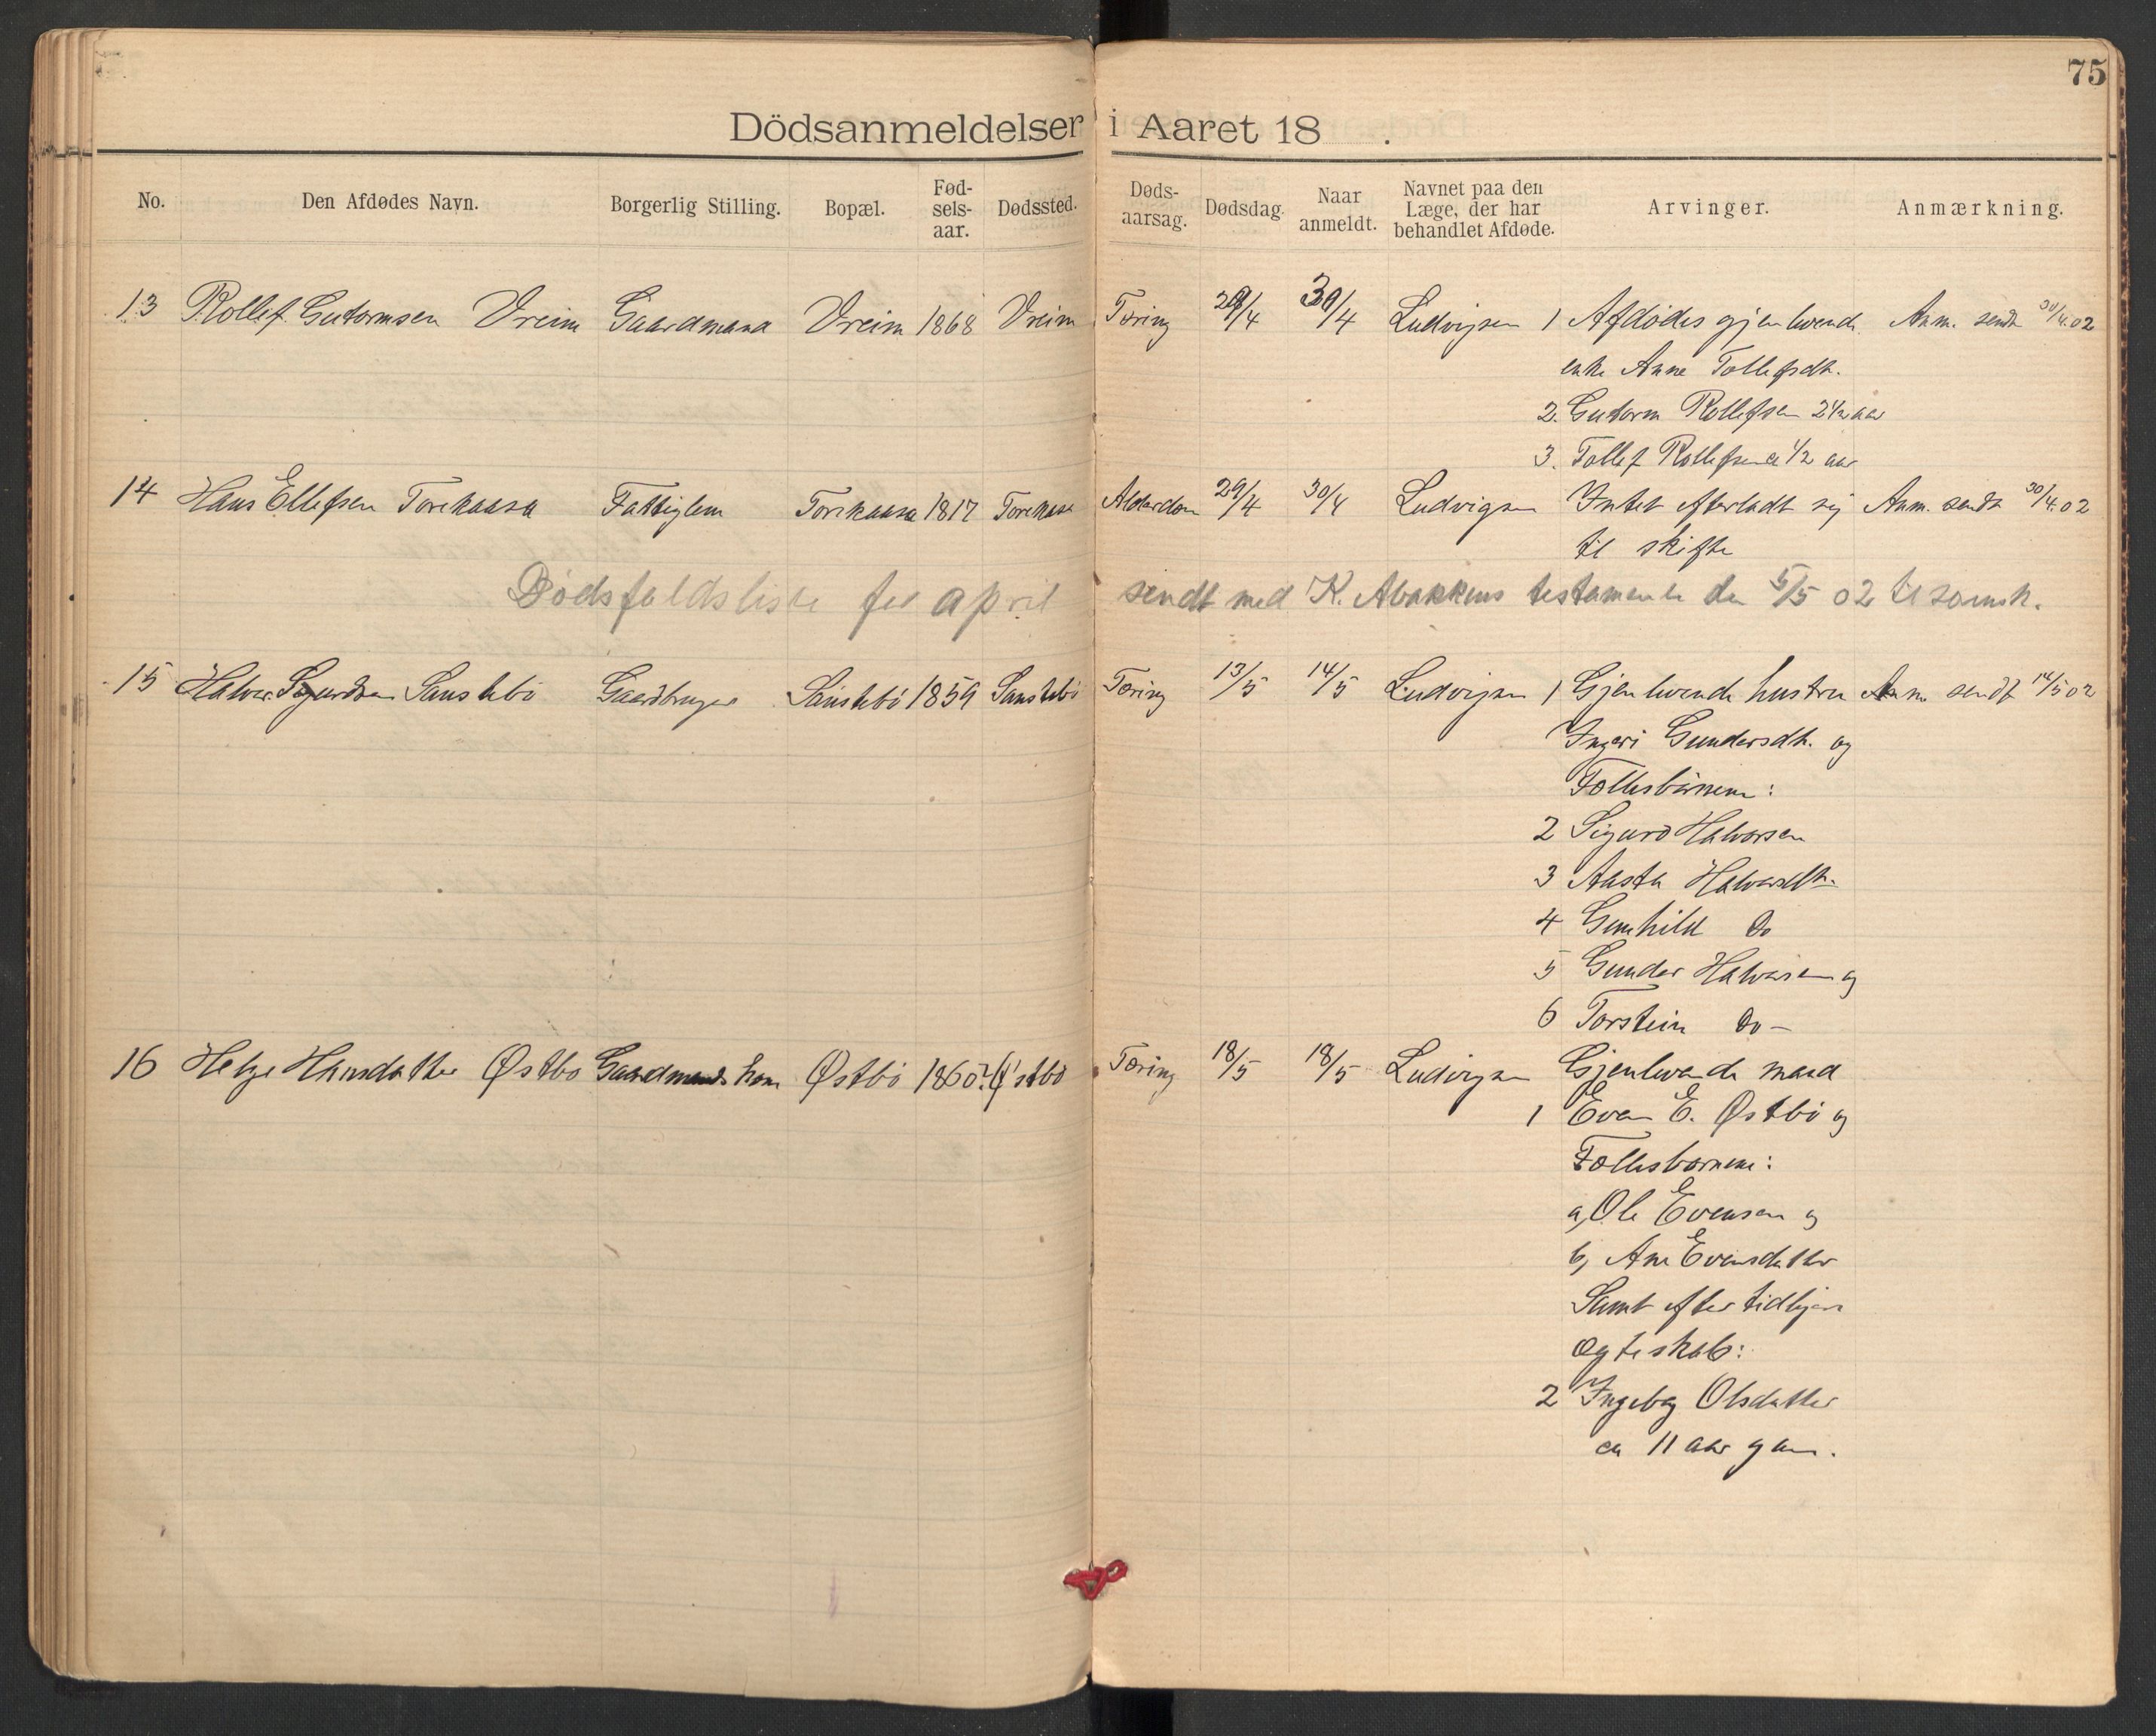 75
Dödsanmeldelser i Aaret 18 .
No. Den Afdødes Navn. Borgerlig Stilling. Bopæl. Fød-sels-aar. Dødssted. Døds-aarsag. Dødsdag. Naar anmeldt. Navnet paa den Læge, der har behandlet Afdøde. Arvinger. Anmærkning.
13 Rollef Gutormsen Vreim Gaardmand Vreim 1868 Vreim Tæring 29/4 30/4 Ludvigsen 1 Afdödes gjenlevende Anm. sendt 30/4.02
enke Anne Tollefsdtr.
2. Gutorm Rollefsen 2 1/2 aar
3. Tollef Rollefsen 1/2 aar
14 Hans Ellefsen Torekaasa Fattiglem Torekaasa 1817 Torekaasa Alderdom 29/4 30/4 Ludvigsen Intet efterladt sig Anm. sendt 30/4.02
til skifte
Dödsfaldsliste for april sendt med K. Abakkens testamente den 5/5 02 til sorensk.
15 Halvor Sigurdsen Sanstebö Gaardbruger Sanstebö 1859 Sanstebö Tæring 13/5 14/5 Ludvigsen 1 Gjenlevende hustru Anm. sendt 14/5 02
Ingeri Gundersdtr. og
Fællesbörnene:
2 Sigurd Halvorsen
3 Aasta Halvorsdtr.
4 Gunhild Do
5 Gunder Halvorsen og
6 Torstein Do –
16 Helge Hansdatter Østbö Gaardmands kone Østbö 1860? Østbö Tæring 18/5 18/5 Ludvigsen Gjenlevende mand
1 Even E. Østbö og
Fællesbornene:
a, Ole Evensen og
b, Ane Evensdatter
Samt efter tidligere
ægteskab:
2 Ingebg Olsdatter
ca 11 aar gam.